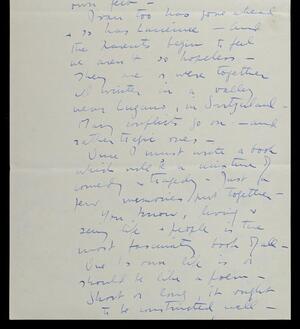 own few -
too has gone ahead
& so has Laurence - and
the parents begin to feel
we aren't so hopeless -
They are & were together
all winter in a valley
near Lugano, in Switzerland -
Many conflicts go on - and
rather tragic ones -
Once I must write a book
which will be a mixture of
comedy & tragedy - Just a
few memories put together -
You know, living &
seeing life & people is the
most fascinating book of all -
One's own life is or
should be like a poem -
Short or long, it ought
to be constructed well -